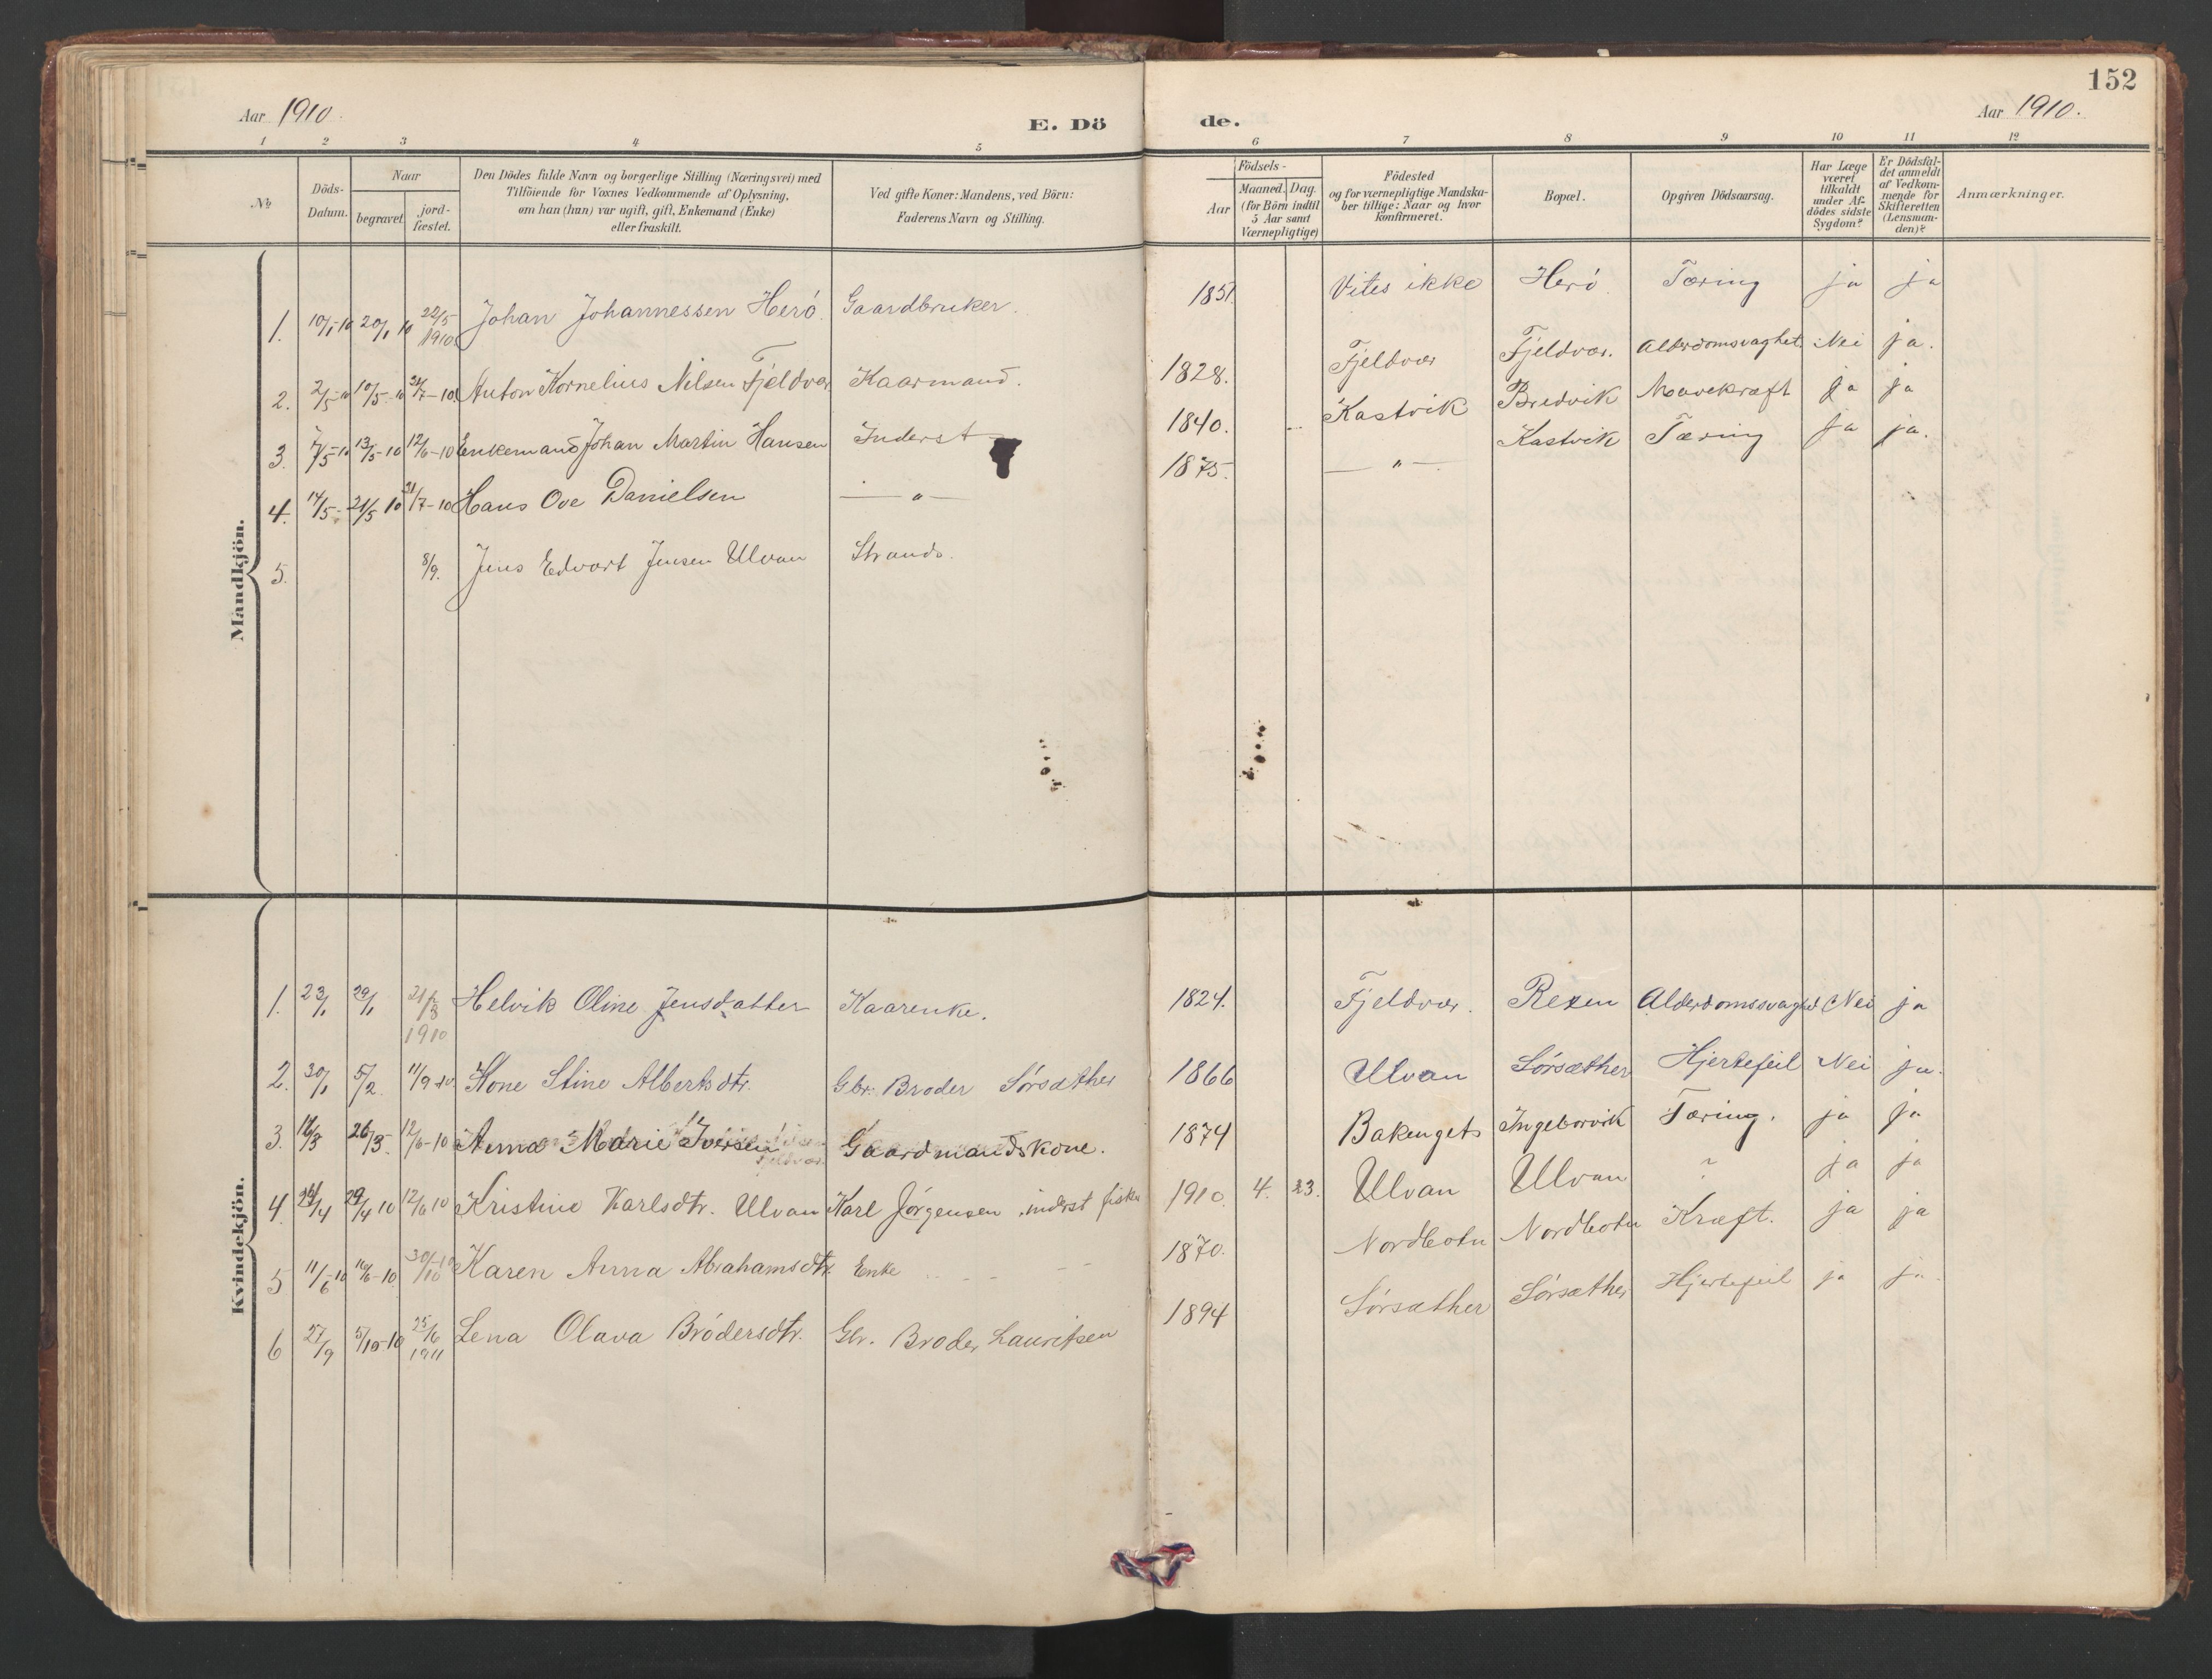 152
Aar 1910.
E. Dö
de.
Aar 1910.
1 2 3 4 5
6 7 8 9 10 11 12
No
Döds-Datum.
Naar
begravet.
jord-fæstet.
Den Dödes fulde Navn og borgerlige Stilling (Næringsvei) med
Tilföiende for Voxnes Vedkommende af Oplysning,
om han (hun) var ugift, gift, Enkemand (Enke)
eller fraskilt.
Ved gifte Koner: Mandens, ved Börn:
Faderens Navn og Stilling.
Födsels-
Aar
Maaned. Dag.
(for Börn indtil
5 Aar samt
Værnepligtige)
Födested
og for værnepligtige Mandska-
ber tillige: Naar og hvor
konfirmeret.
Bopæl.
Opgiven Dödsaarsag.
Har Læge
været
tilkaldt
under Af-
dödes sidste
Sygdom?
Er Dödsfal-
det anmeldt
af Vedkom-
mende for
Skifteretten
(Lensman-
den)?
Anmærkninger.
Mandkjön.
1. 10/1-10 20/1 10 22/5 1910. Johan Johannessen Herö. Gaardbruker. 1851. Vites ikke Herö Tæring ja ja
2. 2/5-10 10/5-10 31/7-10. Anton Kornelius Nilsen Fjeldvær Kaarmand. 1828. Fjeldvær Fjeldvær. Alderdomsvaghet. Nei ja.
3. 7/5-10 13/5-10 12/6-10 Enkemand Johan Martin Hansen Inderst 1840. Kastvik Bredvik Mavekræft ja ja
4. 14/5- 21/5 10 31/7-10 Hans Ove Danielsen — " — 1875. — " — Kastvik Tæring ja ja.
5. 8/9. Jens Edvart Jensen Ulvan Strands.
Kvindekjön.
1. 23/1 29/1 21/8 1910 Helvik Oline Jensdatter Kaarenke. 1824. Fjeldvær. Rexen Alderdomssvaghed Nei ja
2. 30/1 5/2. 11/9 10. Kone Stine Albertsdtr. Gbr. Broder Sörsæther 1866 Ulvan Sörsæther Hjertefeil Nei ja.
3. 16/3 26/3. 12/6-10 Anna Marie Iversen Gaardmandskone. 1874 Bakenget Ingeborvik Tæring. ja ja
4. 26/4 29/4 10 12/6 10 Kristine Karlsdtr. Ulvan Karl Jørgensen inderst fisker 1910. 4. 23. Ulvan Ulvan ? ja ja
5 11/6-10 16/6-10. 30/10-10 Karen Anna Abrahamsdtr. Enke 1870. Nordbotn Nordbotn Kræft. ja ja
6 27/9 5/10-10 25/6 1911 Lena Olava Brödersdtr. Gbr. Broder Lauritsen 1894 Sörsæther Sörsæther Hjertefeil ja ja